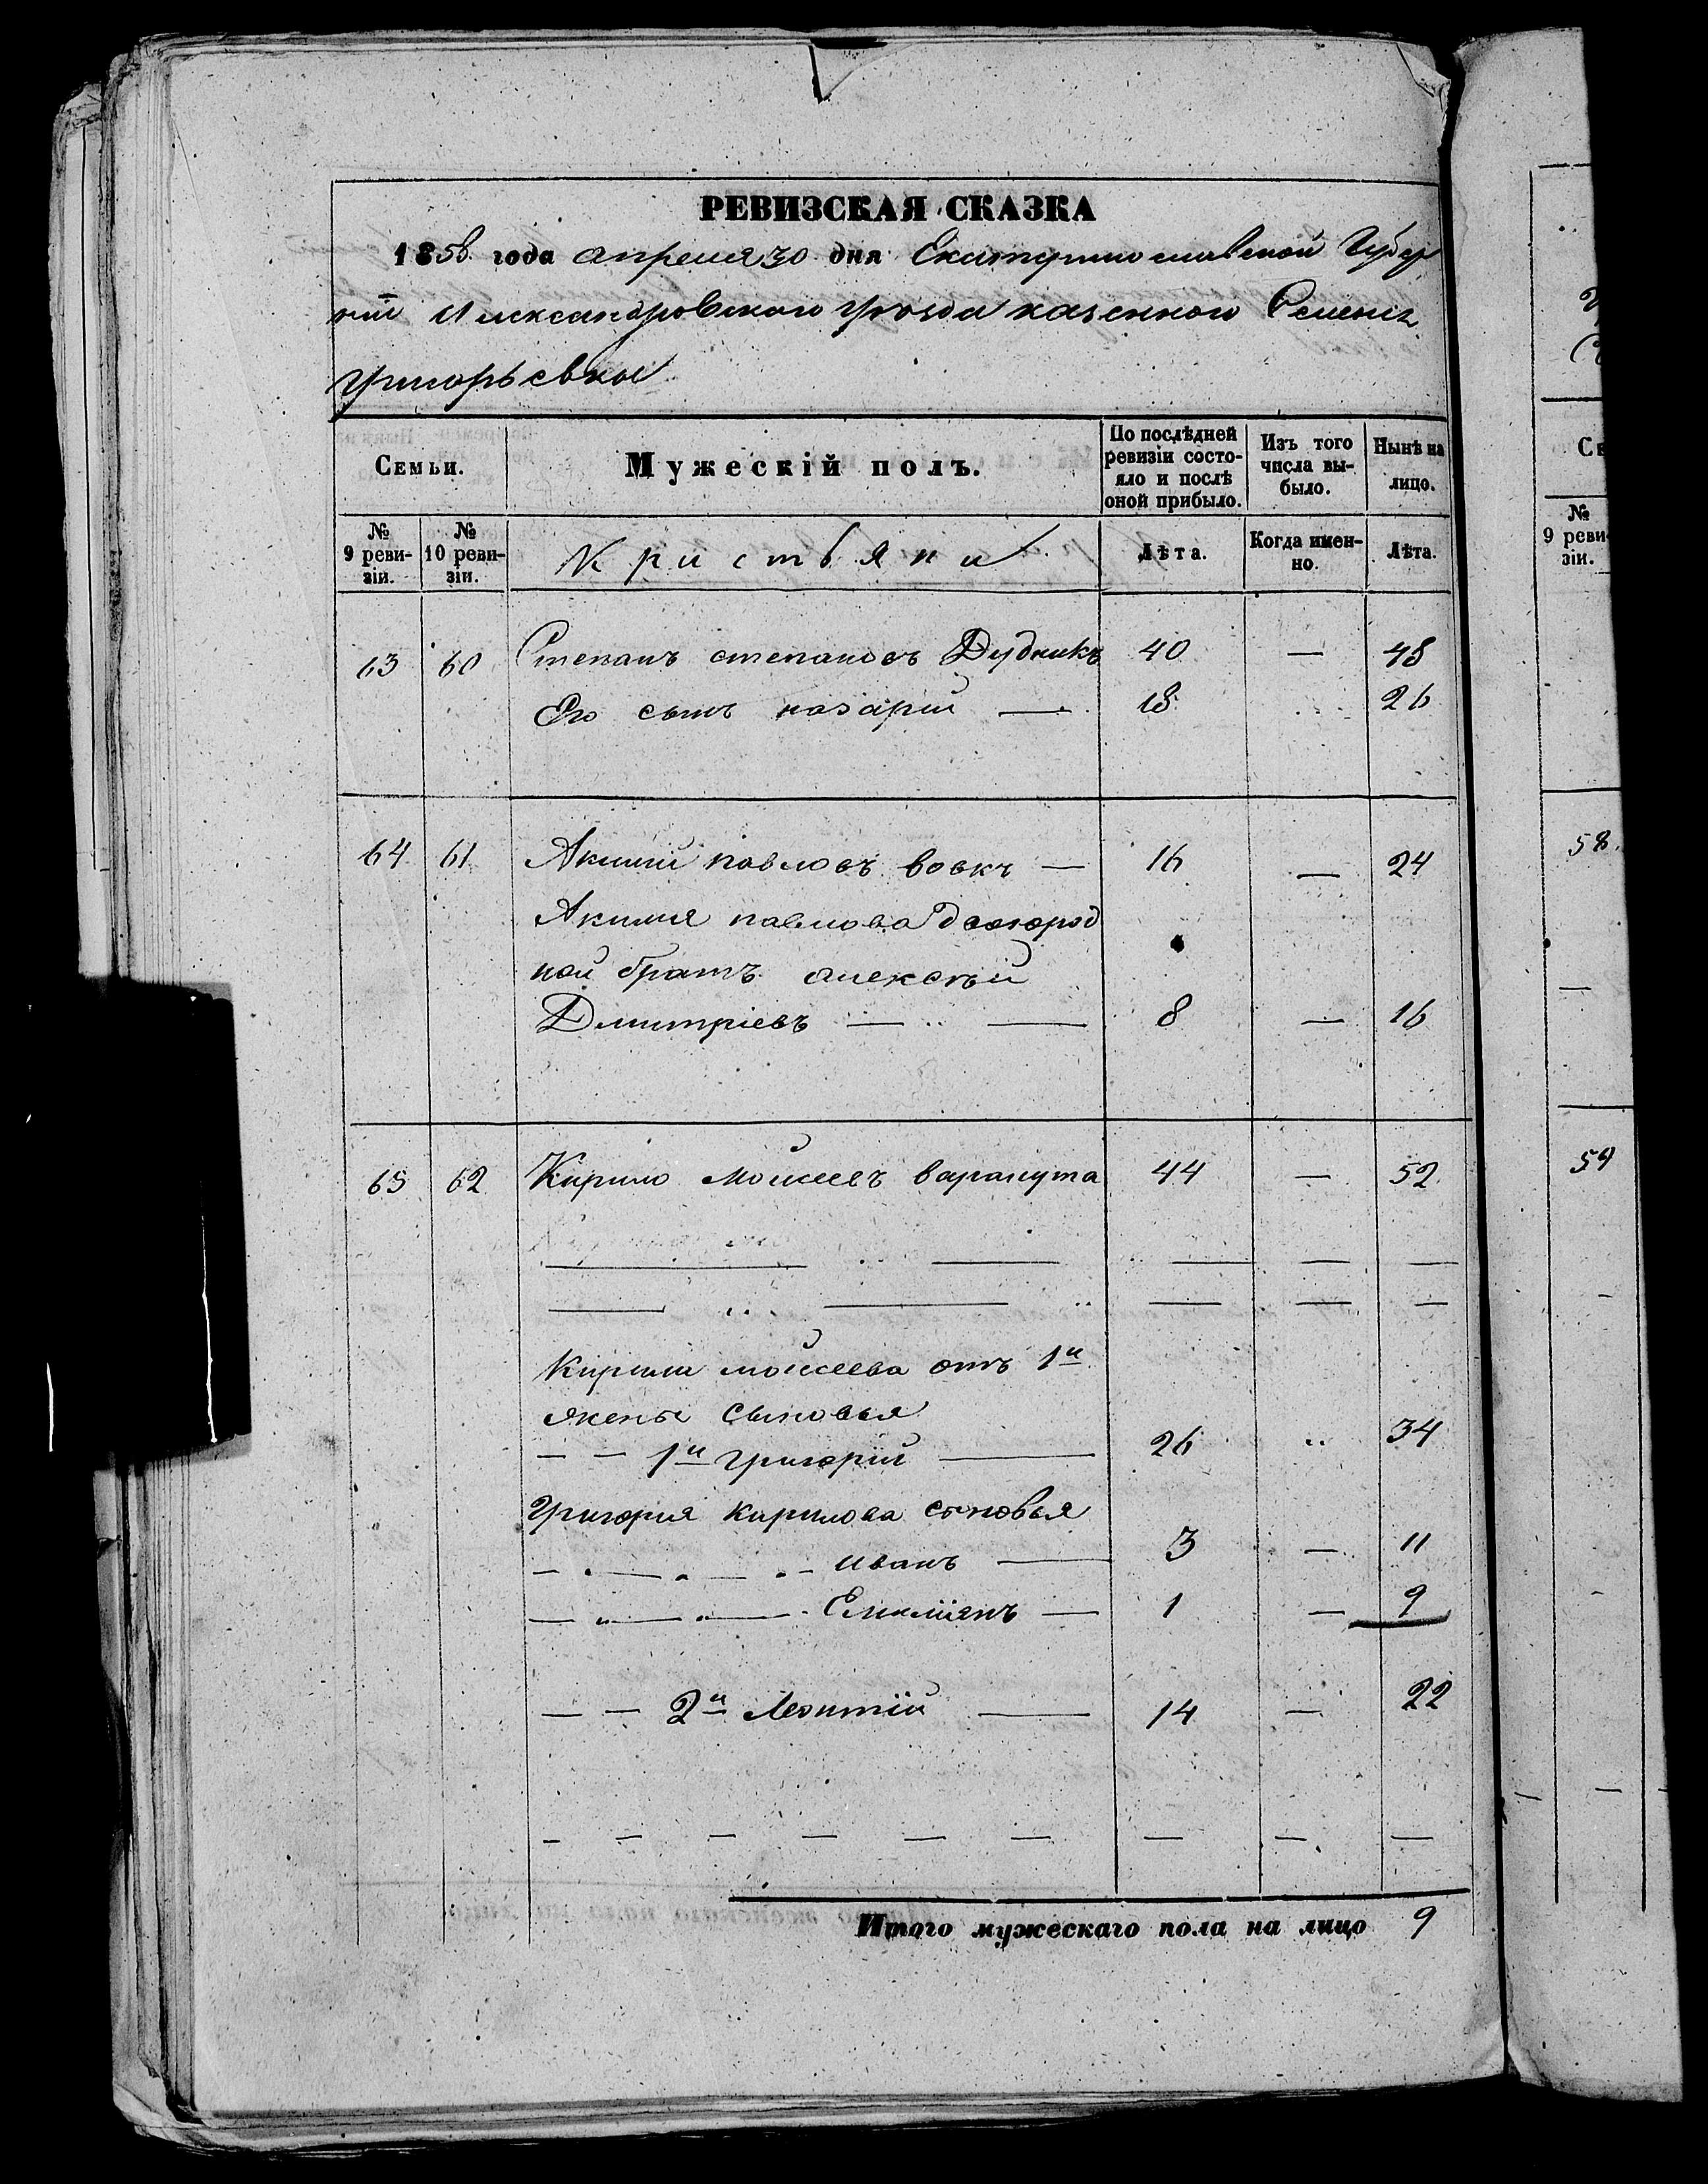 РЕВИЗСКАЯ СКАЗКА
1858 года апреля 30 дня Екатеринославской Губер
ніи Александровского уѣзда казенного Селенія
Григорьевки
Семьи.
Мужескій полъ.
По послѣдней ревизіи состо-
яло и послѣ
оной прибыло.
Изъ того
числа вы-
было.
Нынѣ на
лицо.
№
9 реви-
зіи.
№
10 реви-
зіи.
Кристьяни
Лѣта.
Когда имен-
но.
Лѣта.
63 60 Степанъ степановъ Дудникъ 40 — 48
Его сынъ назарій — 18 26
64 61 Акимъ павловъ вовкъ — 16 — 24
Акима павлова двоюрод
ной братъ алексѣй
Дмитріевъ — — 8 — 16
65 62 Кирило Моисеевъ варакута 44 — 52
Кирила моисеева отъ 1й
жены сыновья
— — 1й григорій — 26 34
Григорія кирилова сыновья
иванъ — 3 — 11
Емиліянъ — 1 — 9
— — 2й Леонтій — 14 — 22
Итого мужескаго пола на лицо 9
Се
№
9 реви-
зіи.
58.
59